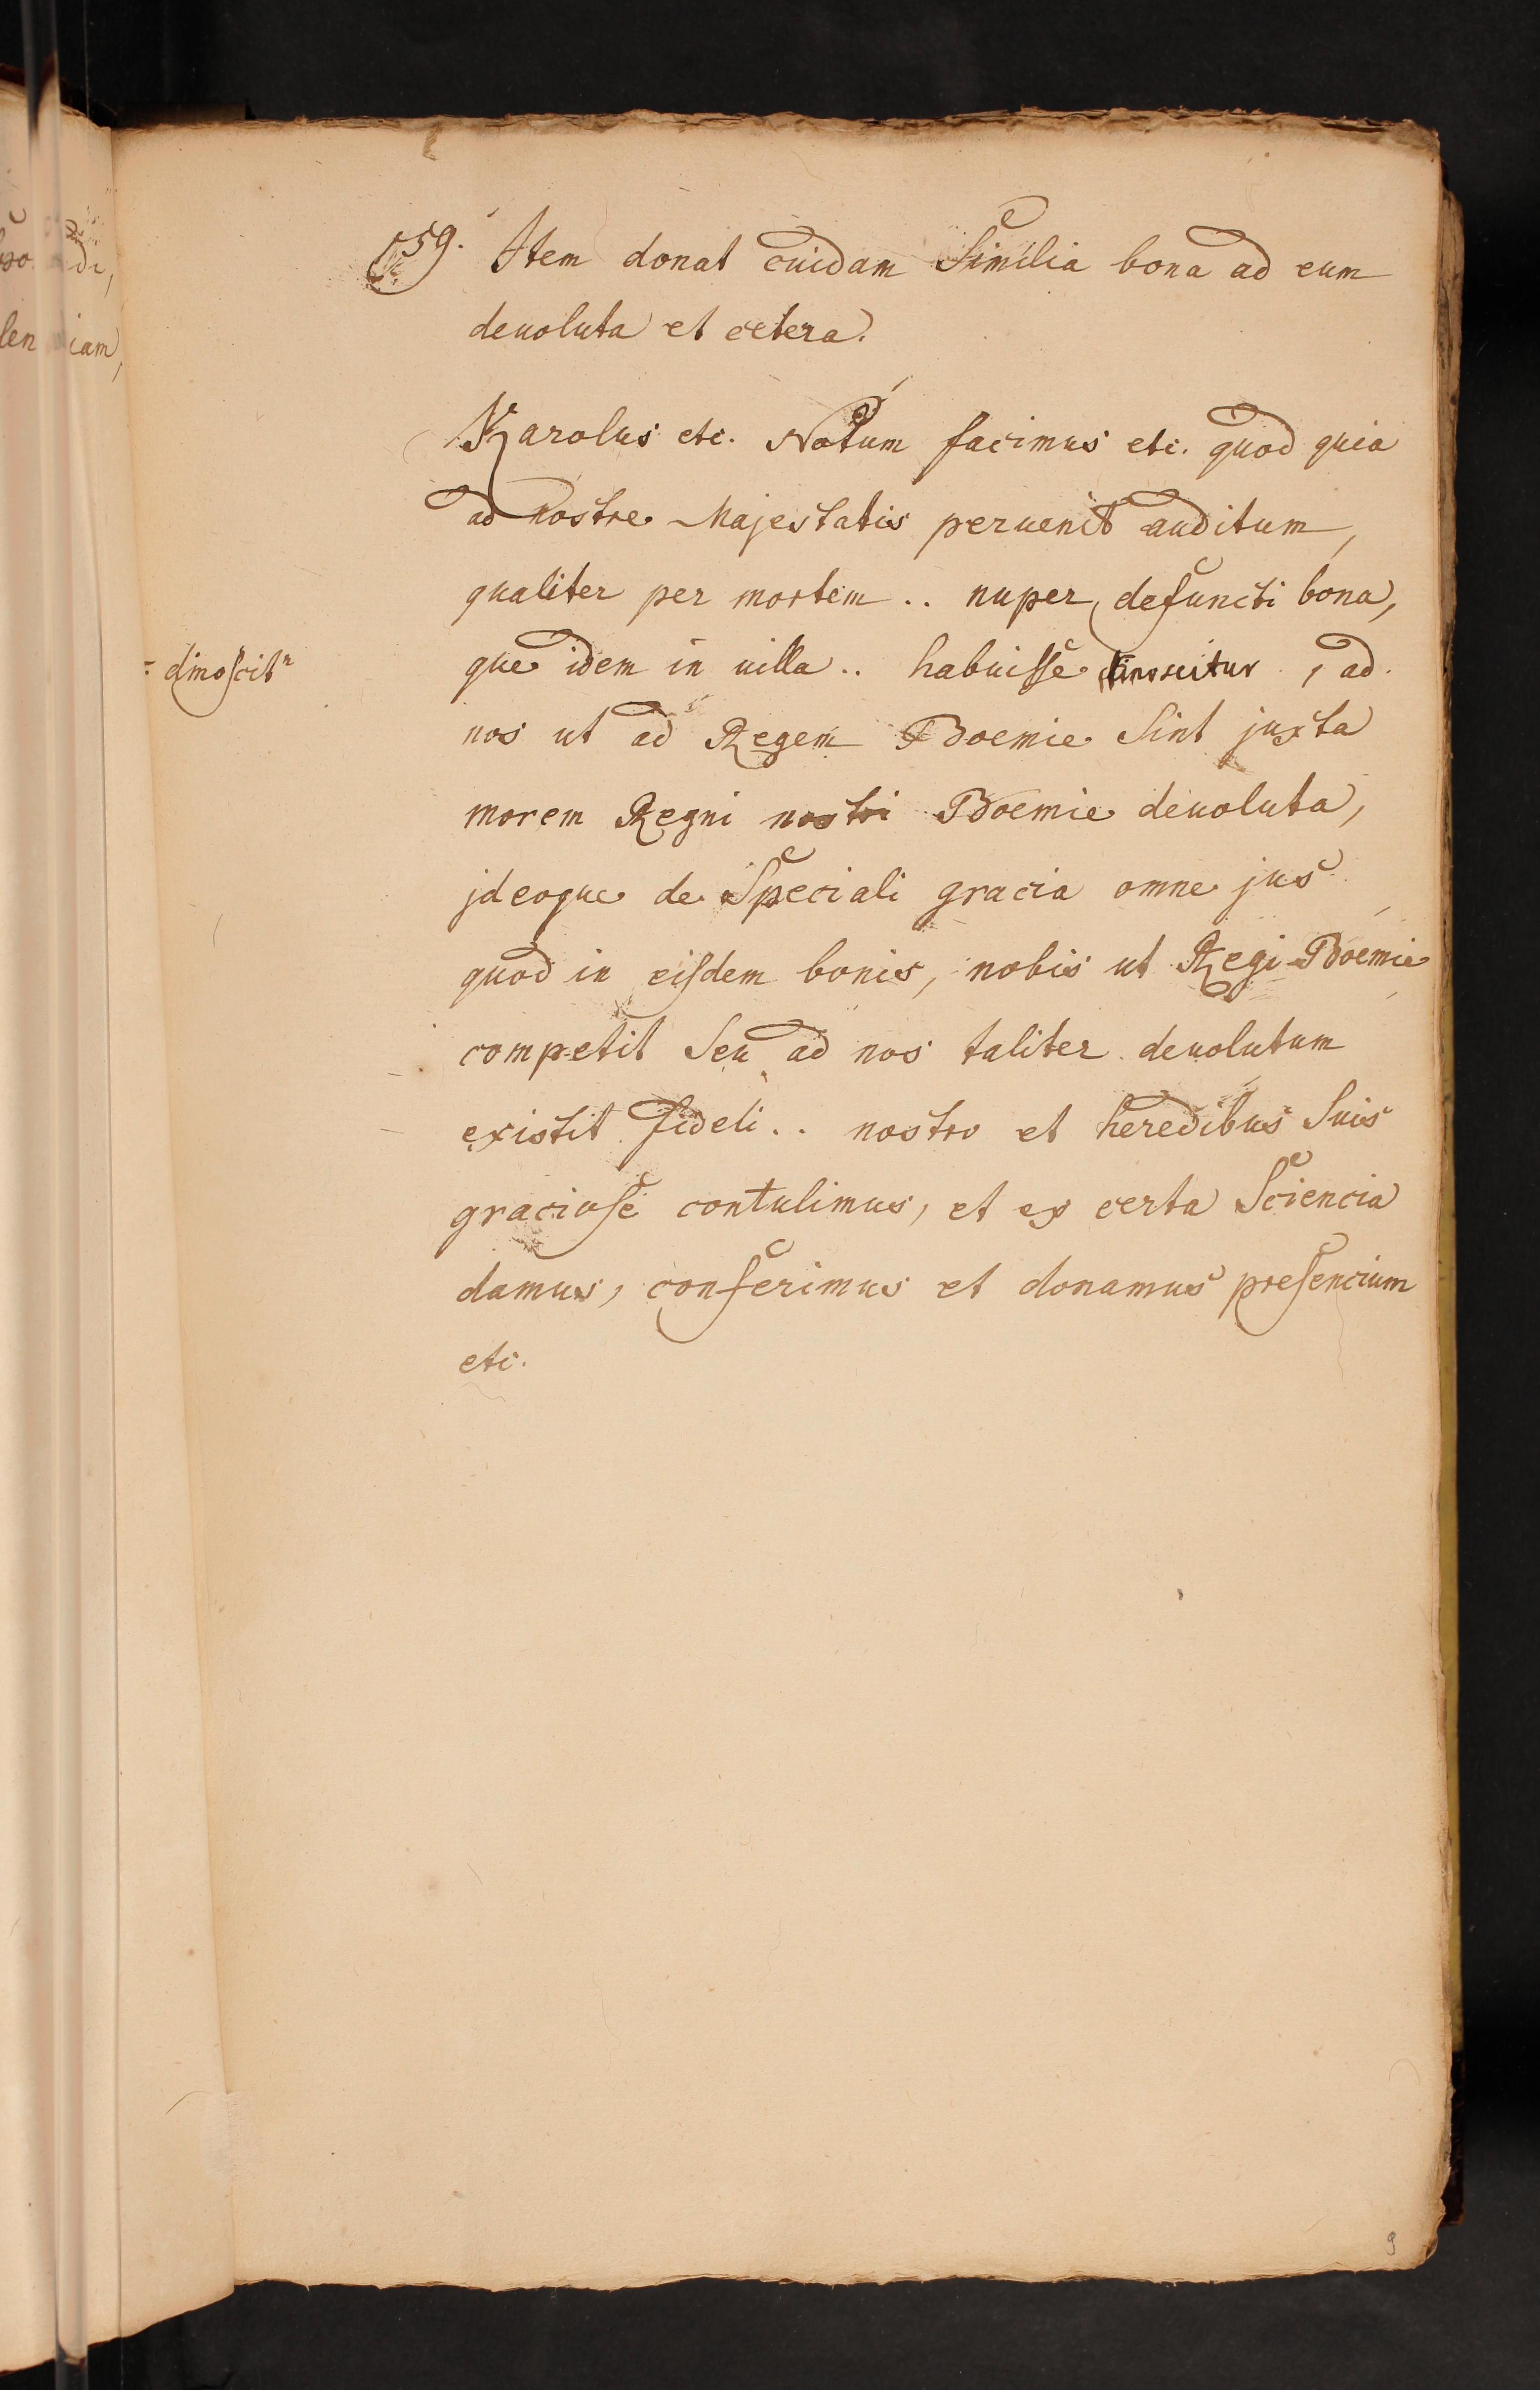 59. Item donat cuidam Similia bona ad eum
devoluta et cetera.
Karolus etc. Notum facimus etc. quod quia
ad nostre Majestatis peruenit auditum,
qualiter per mortem .. nuper defuncti bona,
que idem in uilla .. habuisse dinoscitur, ad
= dinoscitr
nos ut ad Regem Boemie Sint juxta
morem Regni nostri Boemie deuoluta,
jdeoque de Speciali gracia omne jus
quod in eisdem bonis, nobis ut Regi Boemie
competit Seu ad nos taliter deuolutum
existit fideli .. nostro et heredibus Suis
graciose contulimus, et ex certa Sciencia
damus, conferimus et donamus presencium
etc.
9